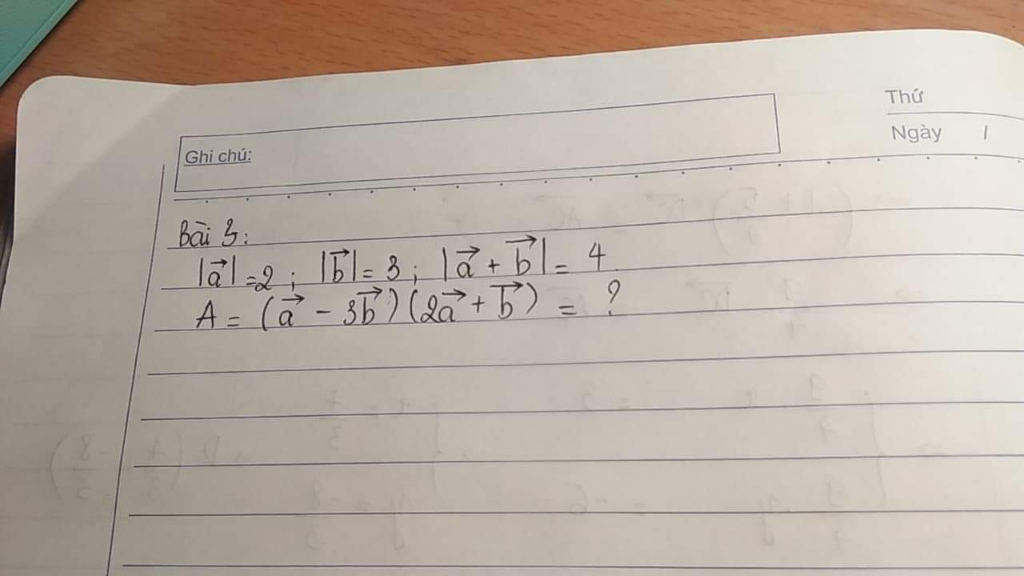 Thứ
Ngày /
Ghi chú:
Bài 3:
|a⃗| = 2 ; |b⃗| = 3 ; |a⃗ + b⃗| = 4
A = (a⃗ - 3b⃗)(2a⃗ + b⃗) = ?